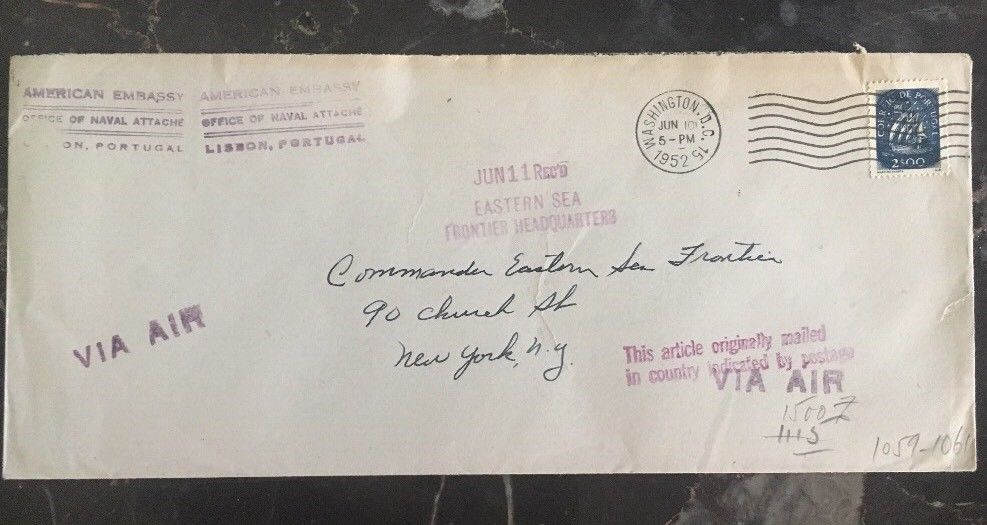 AMERICAN EMBASSY
OFFICE OF NAVAL ATTACHE
ON, PORTUGAL
AMERICAN EMBASSY
OFFICE OF NAVAL ATTACHE
LISBON, PORTUGAL
WASHINGTON, D.C. 15
JUN 10
5-PM
1952
CORREIO DE PORTUGAL
2$00
JUN 11 REC'D
EASTERN SEA
FRONTIER HEADQUARTERS
Commander Eastern Sea Frontier
90 Church St
New York, N.Y.
VIA AIR
This article originally mailed
in country indicated by postage
VIA AIR
1500
1115
1059-1061